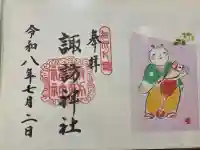 奉拝
諏訪神社
令和八年七月二日